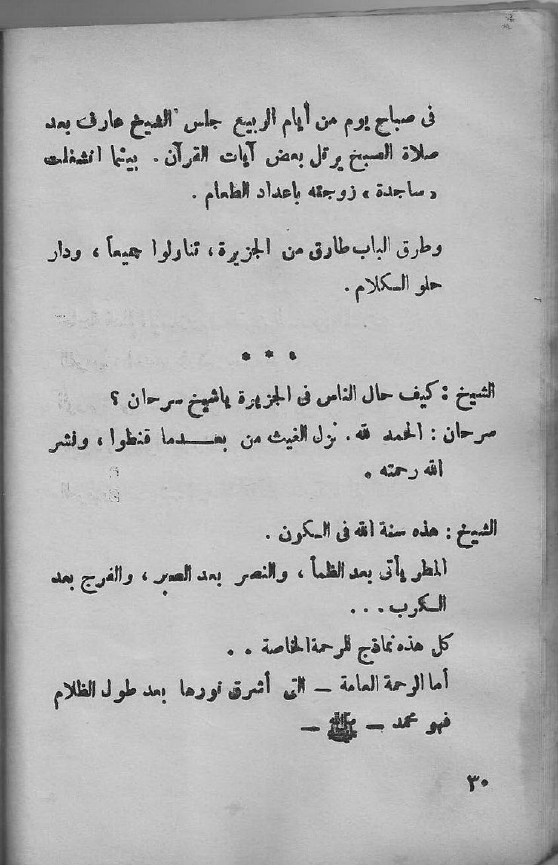 فى صباح يوم من أيام الربيع جلس الشيخ عارف بعد
صلاة الصبح يرتل بعض آيات القرآن. بينما انشغلت
«ساجدة» زوجته باعداد الطعام.
وطرق الباب طارق من الجزيرة، تناولوا جميعاً، ودار
حلو الكلام.
* * *
الشيخ: كيف حال الناس فى الجزيرة ياشيخ سرحان؟
سرحان: الحمد لله. نزل الغيث من بعـــدما قنطوا، ونشر
الله رحمته.
الشيخ: هذه سنة الله فى الكون.
المطر يأتى بعد الظمأ، والنصر بعد الصبر، والفرج بعد
الكرب...
كل هذه نماذج للرحمة الخاصة..
أما الرحمة العامة ــ التى أشرق نورها بعد طول الظلام
فهو محمد ــ ﷺ ــ
٣٠